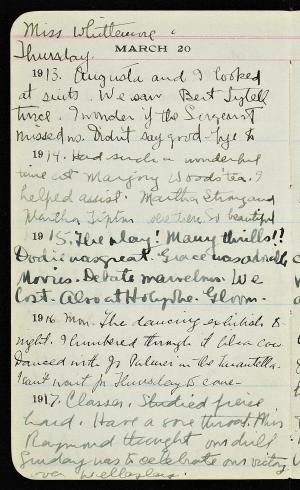 Miss Whittemore
Thursday.
MARCH 20
1913. Augusta and I looked
at suits. We saw Bert Lytell
twice. I wonder if the Sergeant
missed us. Didn't say good-bye to
1914. Had such a wonderful
time at Marjory Woods tea. I
helped assist. Martha Strong and
Martha Tipton were there. So beautiful
1915. The play! Many thrills!!
Dodie was great. Grace was adorable
Movies. Debate marvelous. We
lost. Also at Holyoke. Gloom.
1916. Mon. The dancing exhibition to-
night. I lumbered through it like a cow
Danced with Jo Palmer in the Tarantella.
I can't wait for Thursday to come-
1917. Classes. Studied fierce
hard. Have a sore throat. Miss
Raymond thought our drill
Sunday was to celebrate our victory
over Wellesley.